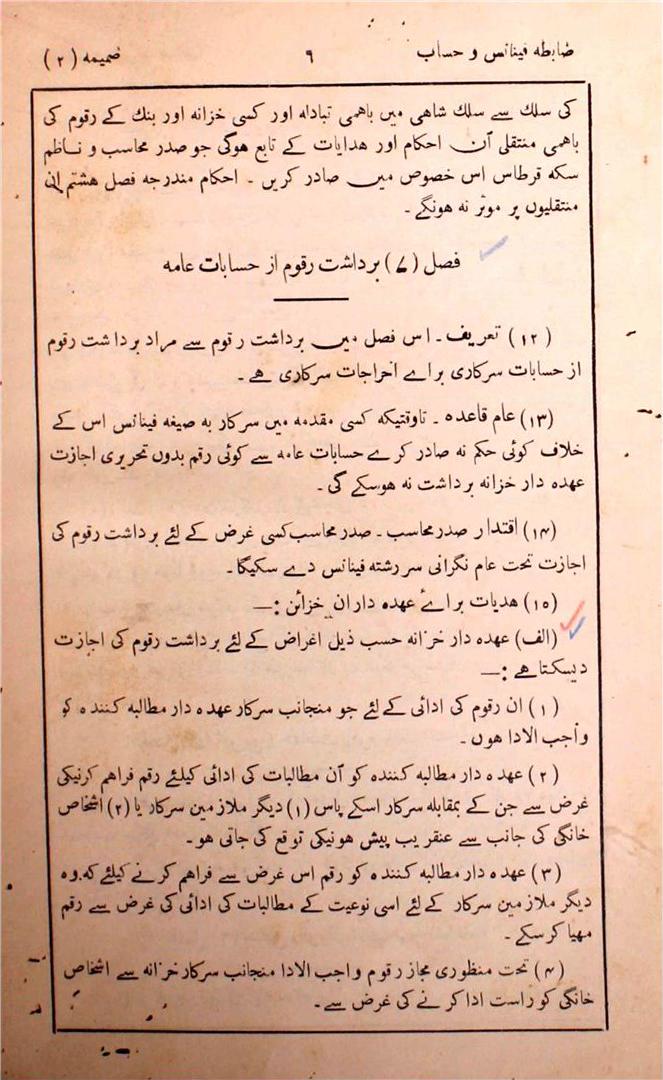 ضابطه فینانس و حساب ۹ ضمیمه (۲)
کی سلك سے سلك شاھی میں باہمی تبادلہ اور کسی خزانہ اور بنك کے رقوم کی
باہمی منتقلی اُن احکام اور ہدایات کے تابع ہوگی جو صدر محاسب و ناظم
سکہ قرطاس اس خصوص میں صادر کریں ۔ احکام مندرجہ فصل ہشتم ان
منتقلیوں پر موثر نہ ہونگے ۔
فصل (۷) برداشت رقوم از حسابات عامہ
(۱۲) تعریف ۔ اس فصل میں برداشت رقوم سے مراد برداشت رقوم
از حسابات سرکاری براے اخراجات سرکاری ہے ۔
(۱۳) عام قاعدہ ۔ تاوقتیکہ کسی مقدمہ میں سرکار بہ صیغہ فینانس اس کے
خلاف کوئی حکم نہ صادر کرے حسابات عامہ سے کوئی رقم بدوں تحریری اجازت
عہدہ دار خزانہ برداشت نہ ہوسکے گی ۔
(۱۴) اقتدار صدر محاسب ۔ صدر محاسب کسی غرض کے لئے برداشت رقوم کی
اجازت تحت عام نگرانی سررشتہ فینانس دے سکیگا ۔
(۱۵) ہدیات براۓ عہدہ داران خزائن :—
(الف) عہدہ دار خزانہ حسب ذیل اغراض کے لئے برداشت رقوم کی اجازت
دیسکتا ہے :—
(۱) ان رقوم کی ادائی کے لئے جو منجانب سرکار عہدہ دار مطالبہ کنندہ کو
واجب الادا ہوں ۔
(۲) عہدہ دار مطالبہ کنندہ کو اُن مطالبات کی ادائی کیلئے رقم فراہم کرنیکی
غرض سے جن کے بمقابلہ سرکار اسکے پاس (۱) دیگر ملازمین سرکار یا (۲) اشخاص
خانگی کی جانب سے عنقریب پیش ہونیکی توقع کی جاتی ہو ۔
(۳) عہدہ دار مطالبہ کنندہ کو رقم اس غرض سے فراہم کرنے کیلئے کہ وہ
دیگر ملازمین سرکار کے لئے اسی نوعیت کے مطالبات کی ادائی کی غرض سے رقم
مہیا کرسکے ۔
(۴) تحت منظوری مجاز رقوم واجب الادا منجانب سرکار خزانہ سے اشخاص
خانگی کو راست ادا کرنے کی غرض سے ۔